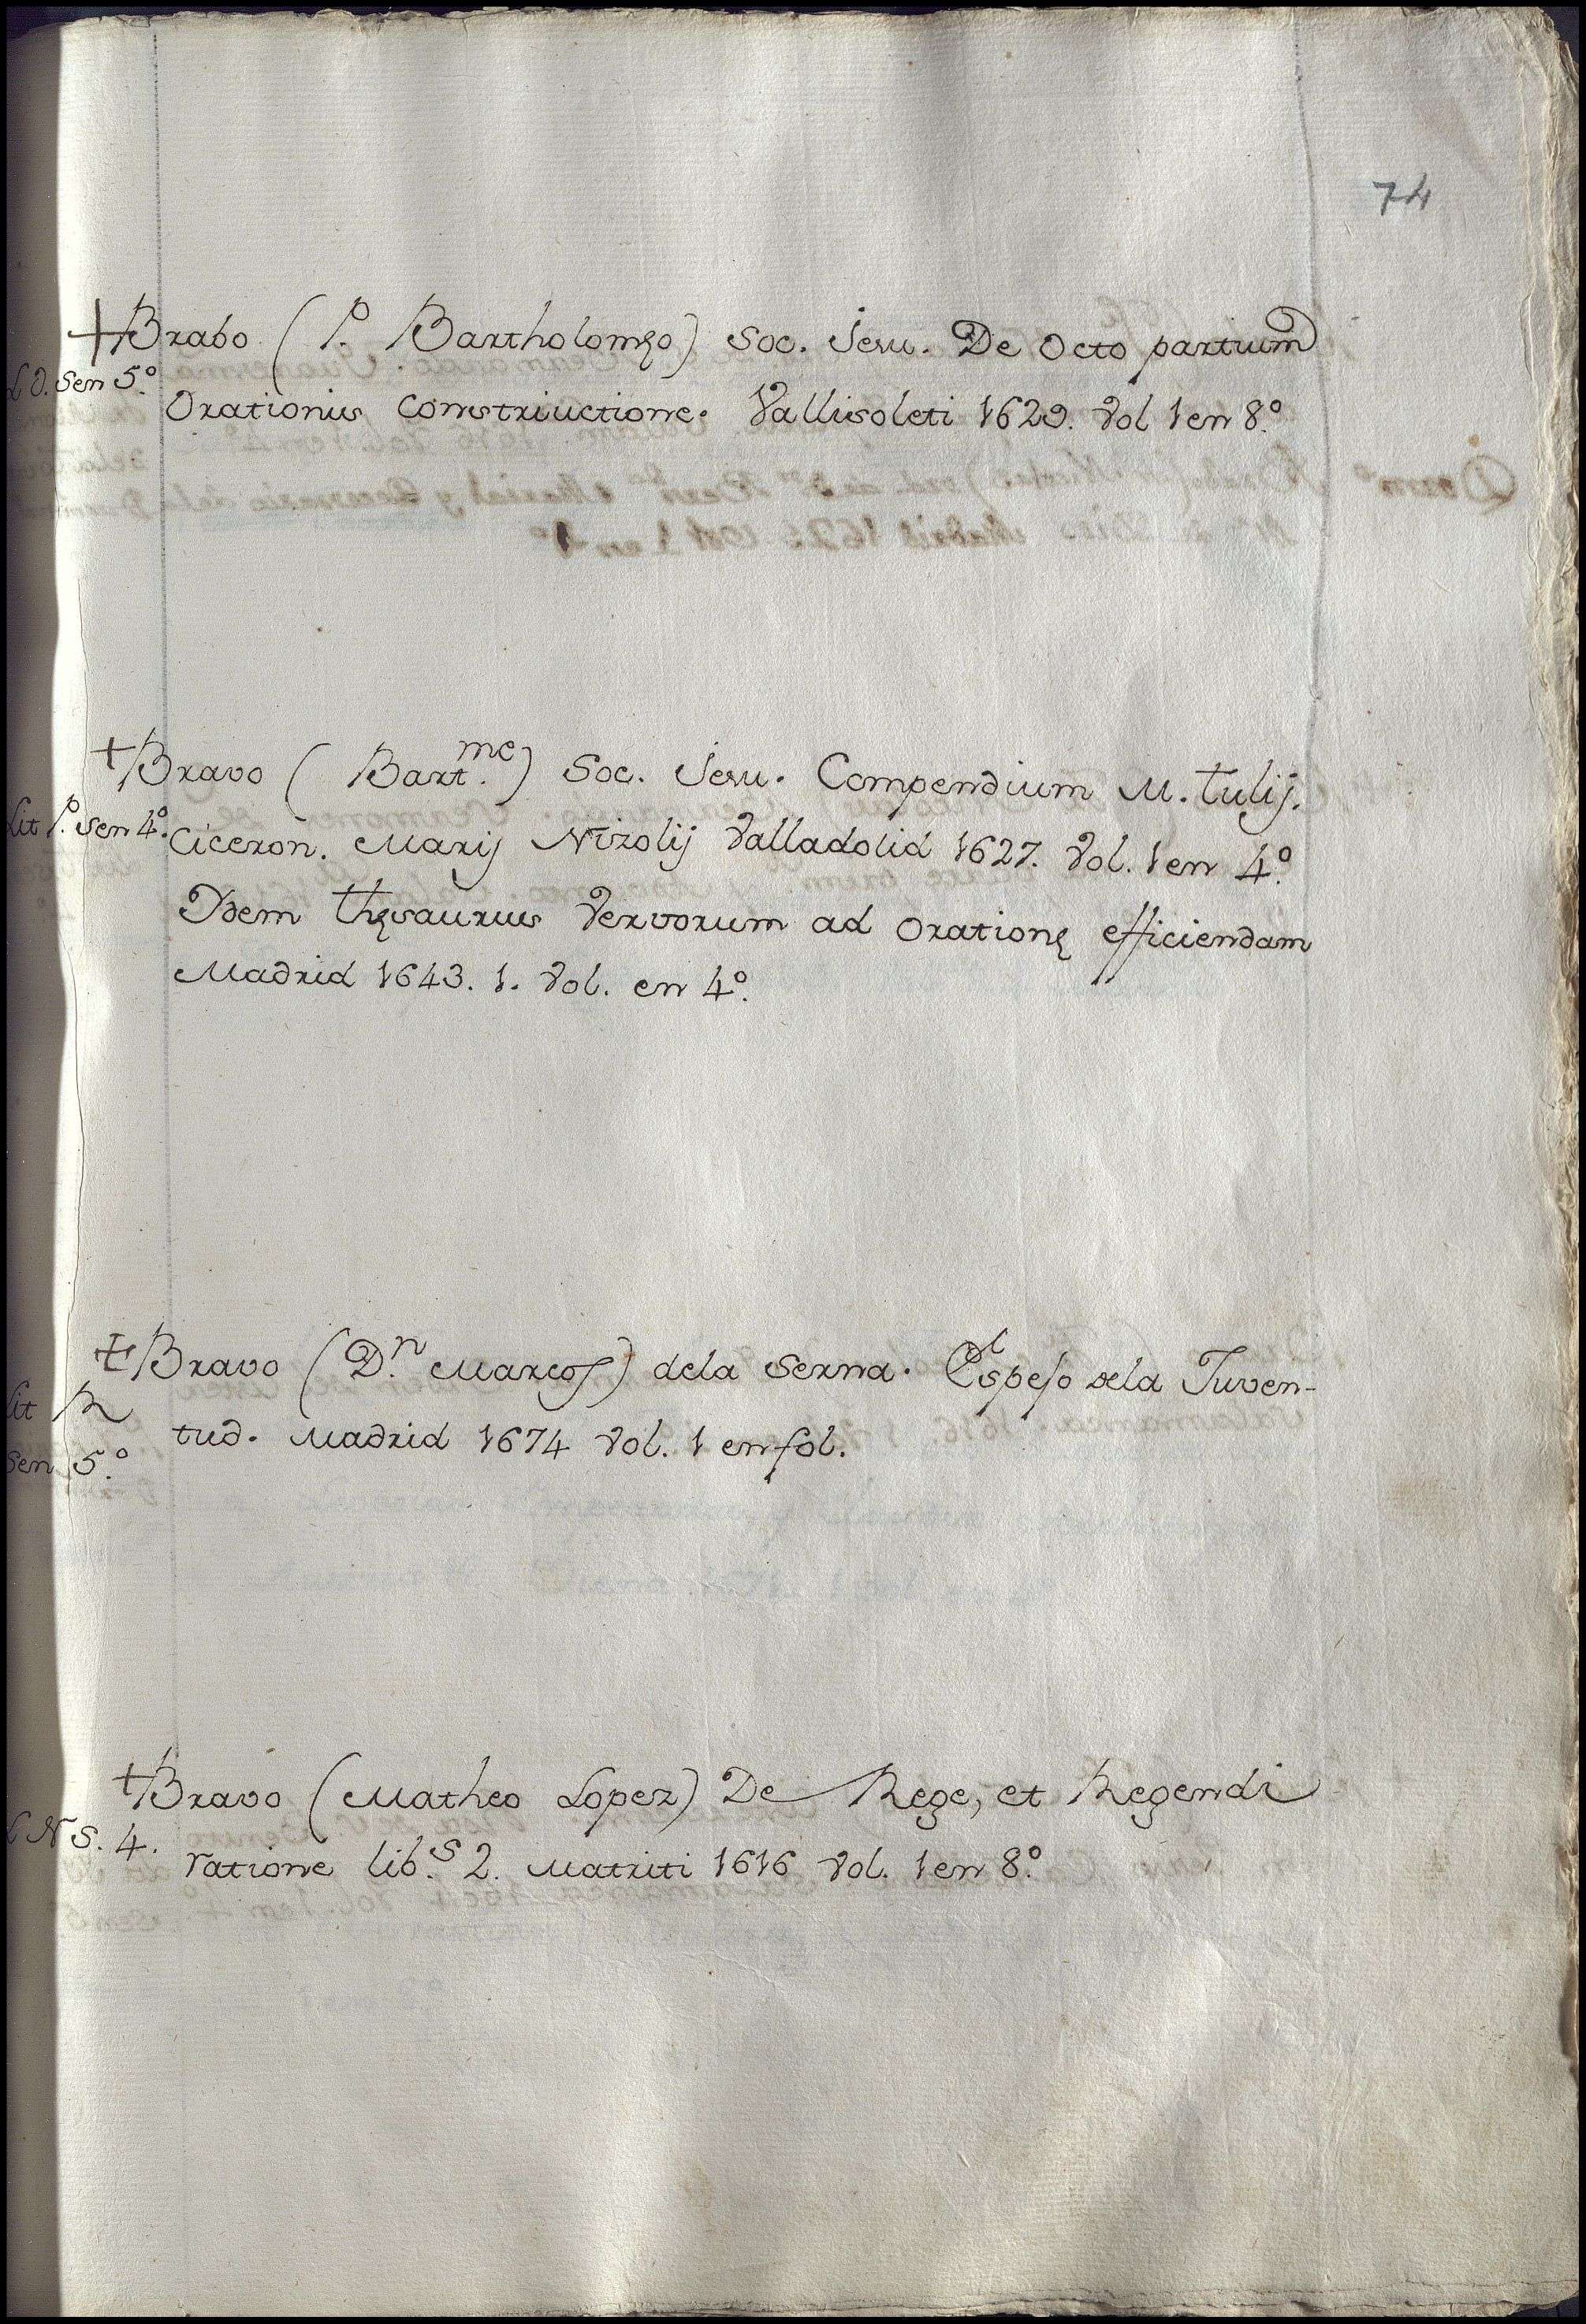 74
+Brabo (P. Bartholomęo) Soc. Jesu. De Octo partium
L O. Sen 5.º
Orationis Constriuctione. Vallisoleti 1629. Vol 1 en 8.º
+Bravo (Bart.me) Soc. Jesu. Compendium M. Tulij.
Lit P. Sen 4.º
Ciceron. Marij Nizolij Valladolid 1627. Vol. 1 en 4.º
Ydem Thęsaurus Vervorum ad orationę efficiendam
Madrid 1643. 1. Vol. en 4.º
+Bravo (D.n Marcos) dela Serna. Espejo dela Juven-
Lit R
tud. Madrid 1674 Vol. 1 en fol.
Sen 5.º
+Bravo (Matheo Lopez) De Rege, et Regendi
L N S. 4.
ratione lib.s 2. Matriti 1616 Vol. 1 en 8.º